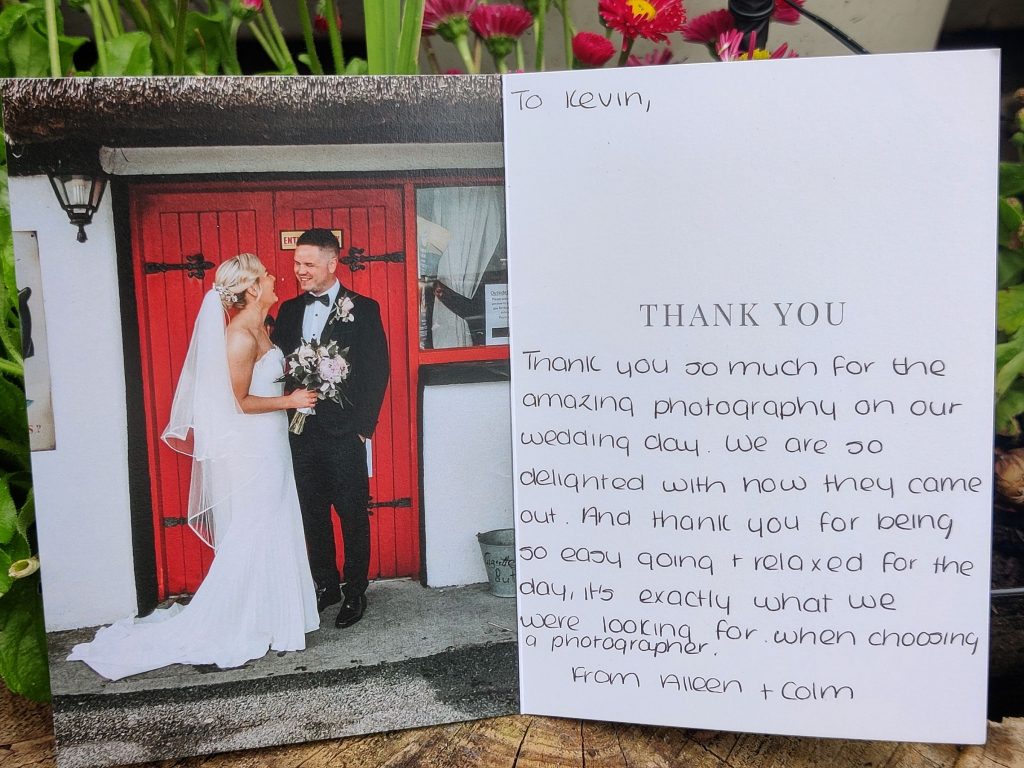 To Kevin,
THANK YOU
Thank you so much for the
amazing photography on our
wedding day. We are so
delighted with how they came
out. And thank you for being
so easy going + relaxed for the
day, it's exactly what we
were looking for when choosing
a photographer.
From Aileen + Colm